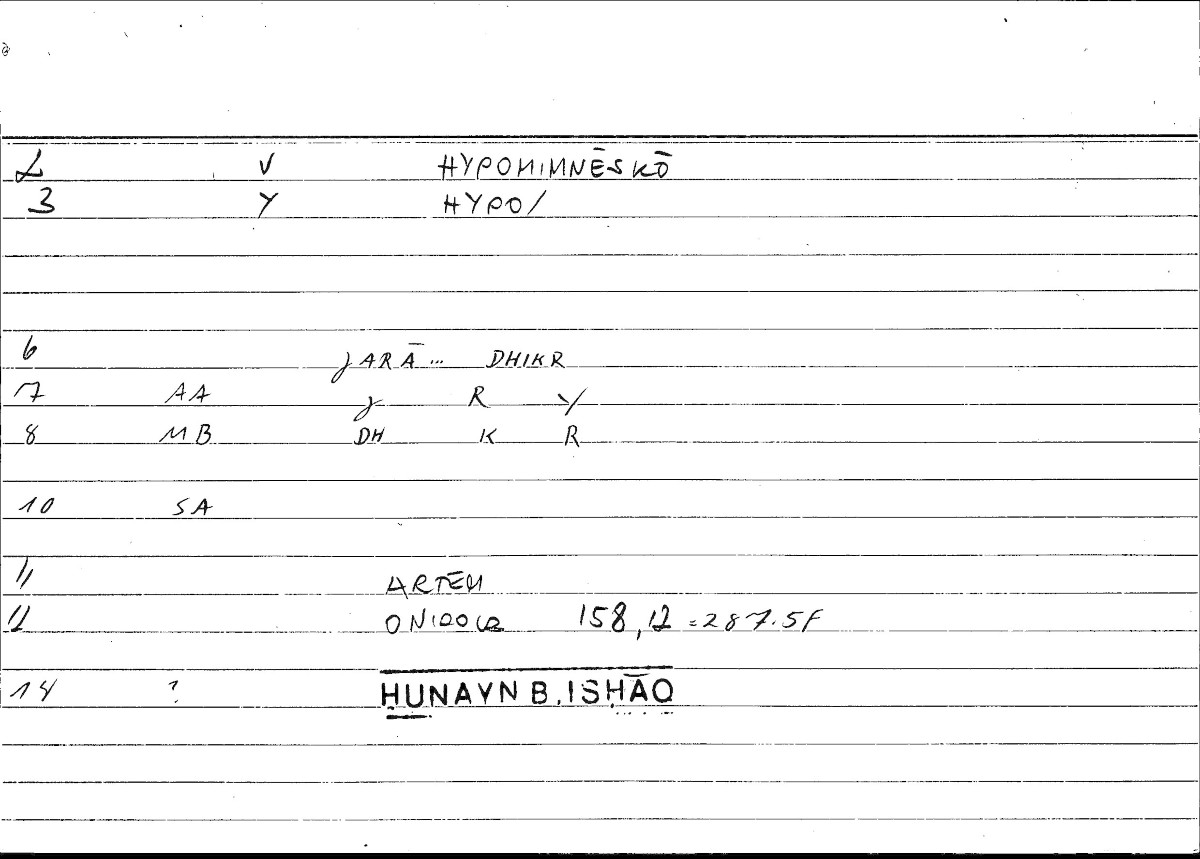 2 V HYPOMIMNĒSKŌ
3 Y HYPO/
6 JARĀ... DHIKR
7 AA J R Y
8 MB DH K R
10 SA
11 ARTEM
12 ONIROCR 158,12 = 287.5F
14 ? ḤUNAYN B. ISḤĀQ